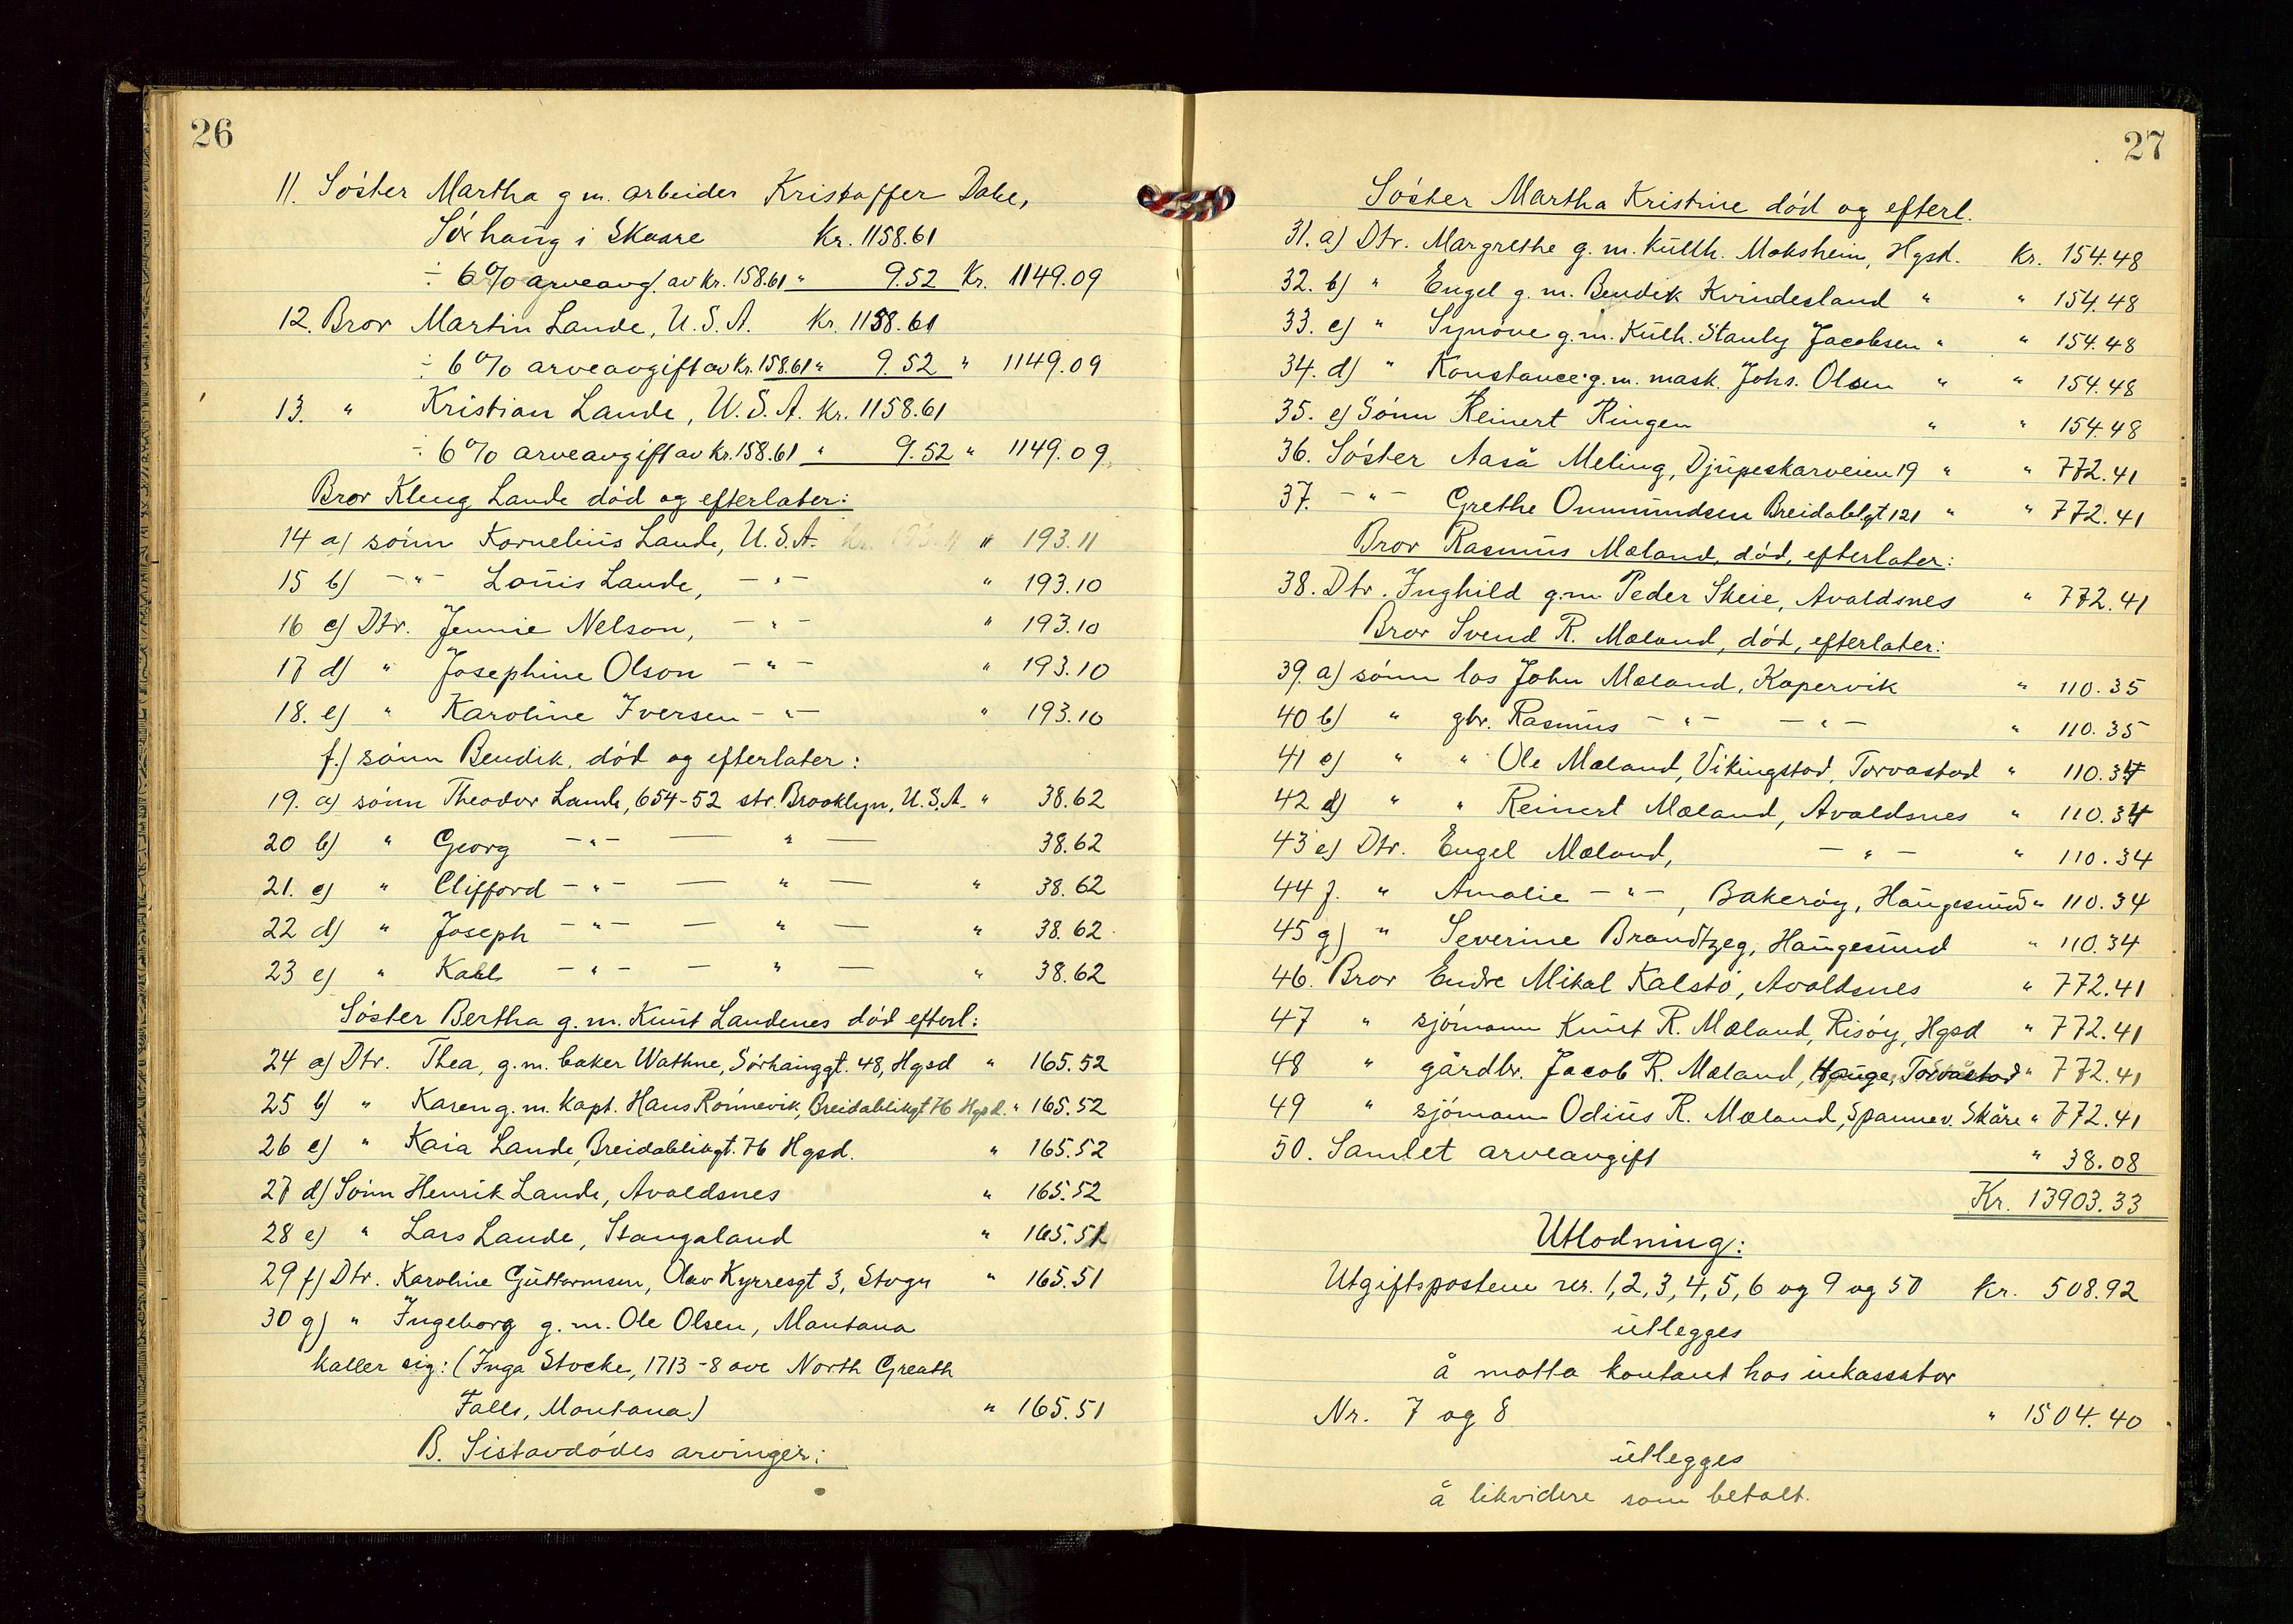 26
11. Søster Martha g m. arbeider Kristoffer Dahe,
Sørhaug i Skaare Kr. 1158.61
÷ 6% arveavg. av Kr. 158.61 " 9.52 Kr. 1149.09
12. Bror Martin Lande, U.S.A. Kr. 1158.61
÷ 6% arveavgift av Kr. 158.61 " 9.52 " 1149.09
13. " Kristian Lande, U.S.A. Kr. 1158.61
÷ 6% arveavgift av Kr. 158.61 " 9.52 " 1149.09
Bror Kleng Lande død og efterlater:
14 a) sønn Kornelius Lande, U.S.A. " 193.11
15 b) -"- Louis Lande, -"- " 193.10
16 c) Dtr. Jennie Nelson, -"- " 193.10
17 d) " Josephine Olson -"- " 193.10
18. e) " Karoline Iversen -"- " 193.10
f.) sønn Bendik, død og efterlater:
19. a) sønn Theodor Lande, 654-52 str. Brooklyn, U.S.A. " 38.62
20 b) " Georg -"- — " — 38.62
21. c) " Clifford -"- — " — " 38.62
22 d) " Joseph -"- — " — " 38.62
23 e) " Kahl -"- — " — " 38.62
Søster Bertha g. m. Knut Landenes død efterl:
24 a) Dtr. Thea, g. m. baker Wathne, Sørhauggt. 48, Hgsd " 165.52
25 b) " Karen g. m. kapt. Hans Rønnevik, Breidablikgt 76 Hgsd. " 165.52
26 c) " Kaia Lande, Breidablikgt. 76 Hgsd. " 165.52
27 d) Sønn Henrik Lande, Avaldsnes " 165.52
28 e) " Lars Lande, Stangaland " 165.51
29 f) Dtr. Karoline Guttormsen, Olav Kyrresgt 3, Stvgr " 165.51
30 g) " Ingeborg g. m. Ole Olsen, Montana
kaller sig: (Inga Stocke, 1713-8 ave North Greath
Falls, Montana) " 165.51
B. Sistavdødes arvinger:
27
Søster Martha Kristine død og efterl.
31. a) Dtr. Margrethe g. m. kullh. Moksheim, Hgsd. Kr. 154.48
32. b) " Engel g. m. Bendik Kvindesland " " 154.48
33. c) " Synøve g. m. Kulh. Stanly Jacobsen " " 154.48
34. d) " Konstance g. m. mask. Johs. Olsen " " 154.48
35. e) Sønn Reinert Ringen " " 154.48
36. Søster Aasa Meling, Djupeskarveien 19 " " 772.41
37. -"- Grethe Ommundsen Breidablgt 121 " " 772.41
Bror Rasmus Mæland, død, efterlater:
38. Dtr. Inghild g. m. Peder Skeie, Avaldsnes " 772.41
Bror Svend R. Mæland, død, efterlater:
39. a) sønn los John Mæland, Kopervik " 110.35
40 b) " gbr. Rasmus -"- -"- " 110.35
41 c) " " Ole Mæland, Vikingstad, Torvastad " 110.34
42 d) " " Reinert Mæland, Avaldsnes " 110.34
43 e) Dtr. Engel Mæland, -"- " 110.34
44 f. " Amalie -"-, Bakerøy, Haugesund " 110.34
45 g) " Severine Brandtzeg, Haugesund " 110.34
46. Bror Endre Mikal Kalstø, Avaldsnes " 772.41
47 " sjømann Knut R. Mæland, Risøy, Hgsd " 772.41
48 " gårdbr. Jacob R. Mæland, Hauge, Torvastad " 772.41
49 " sjømann Odius R. Mæland, Spannev. Skåre " 772.41
50. Samlet arveavgift " 38.08
Kr. 13903.33
Utlodning:
Utgiftspostene nr. 1, 2, 3, 4, 5, 6 og 9 og 50 Kr. 508.92
utlegges
å motta kontant hos inkassator
Nr. 7 og 8 " 1504.40
utlegges
å likvidere som betalt.